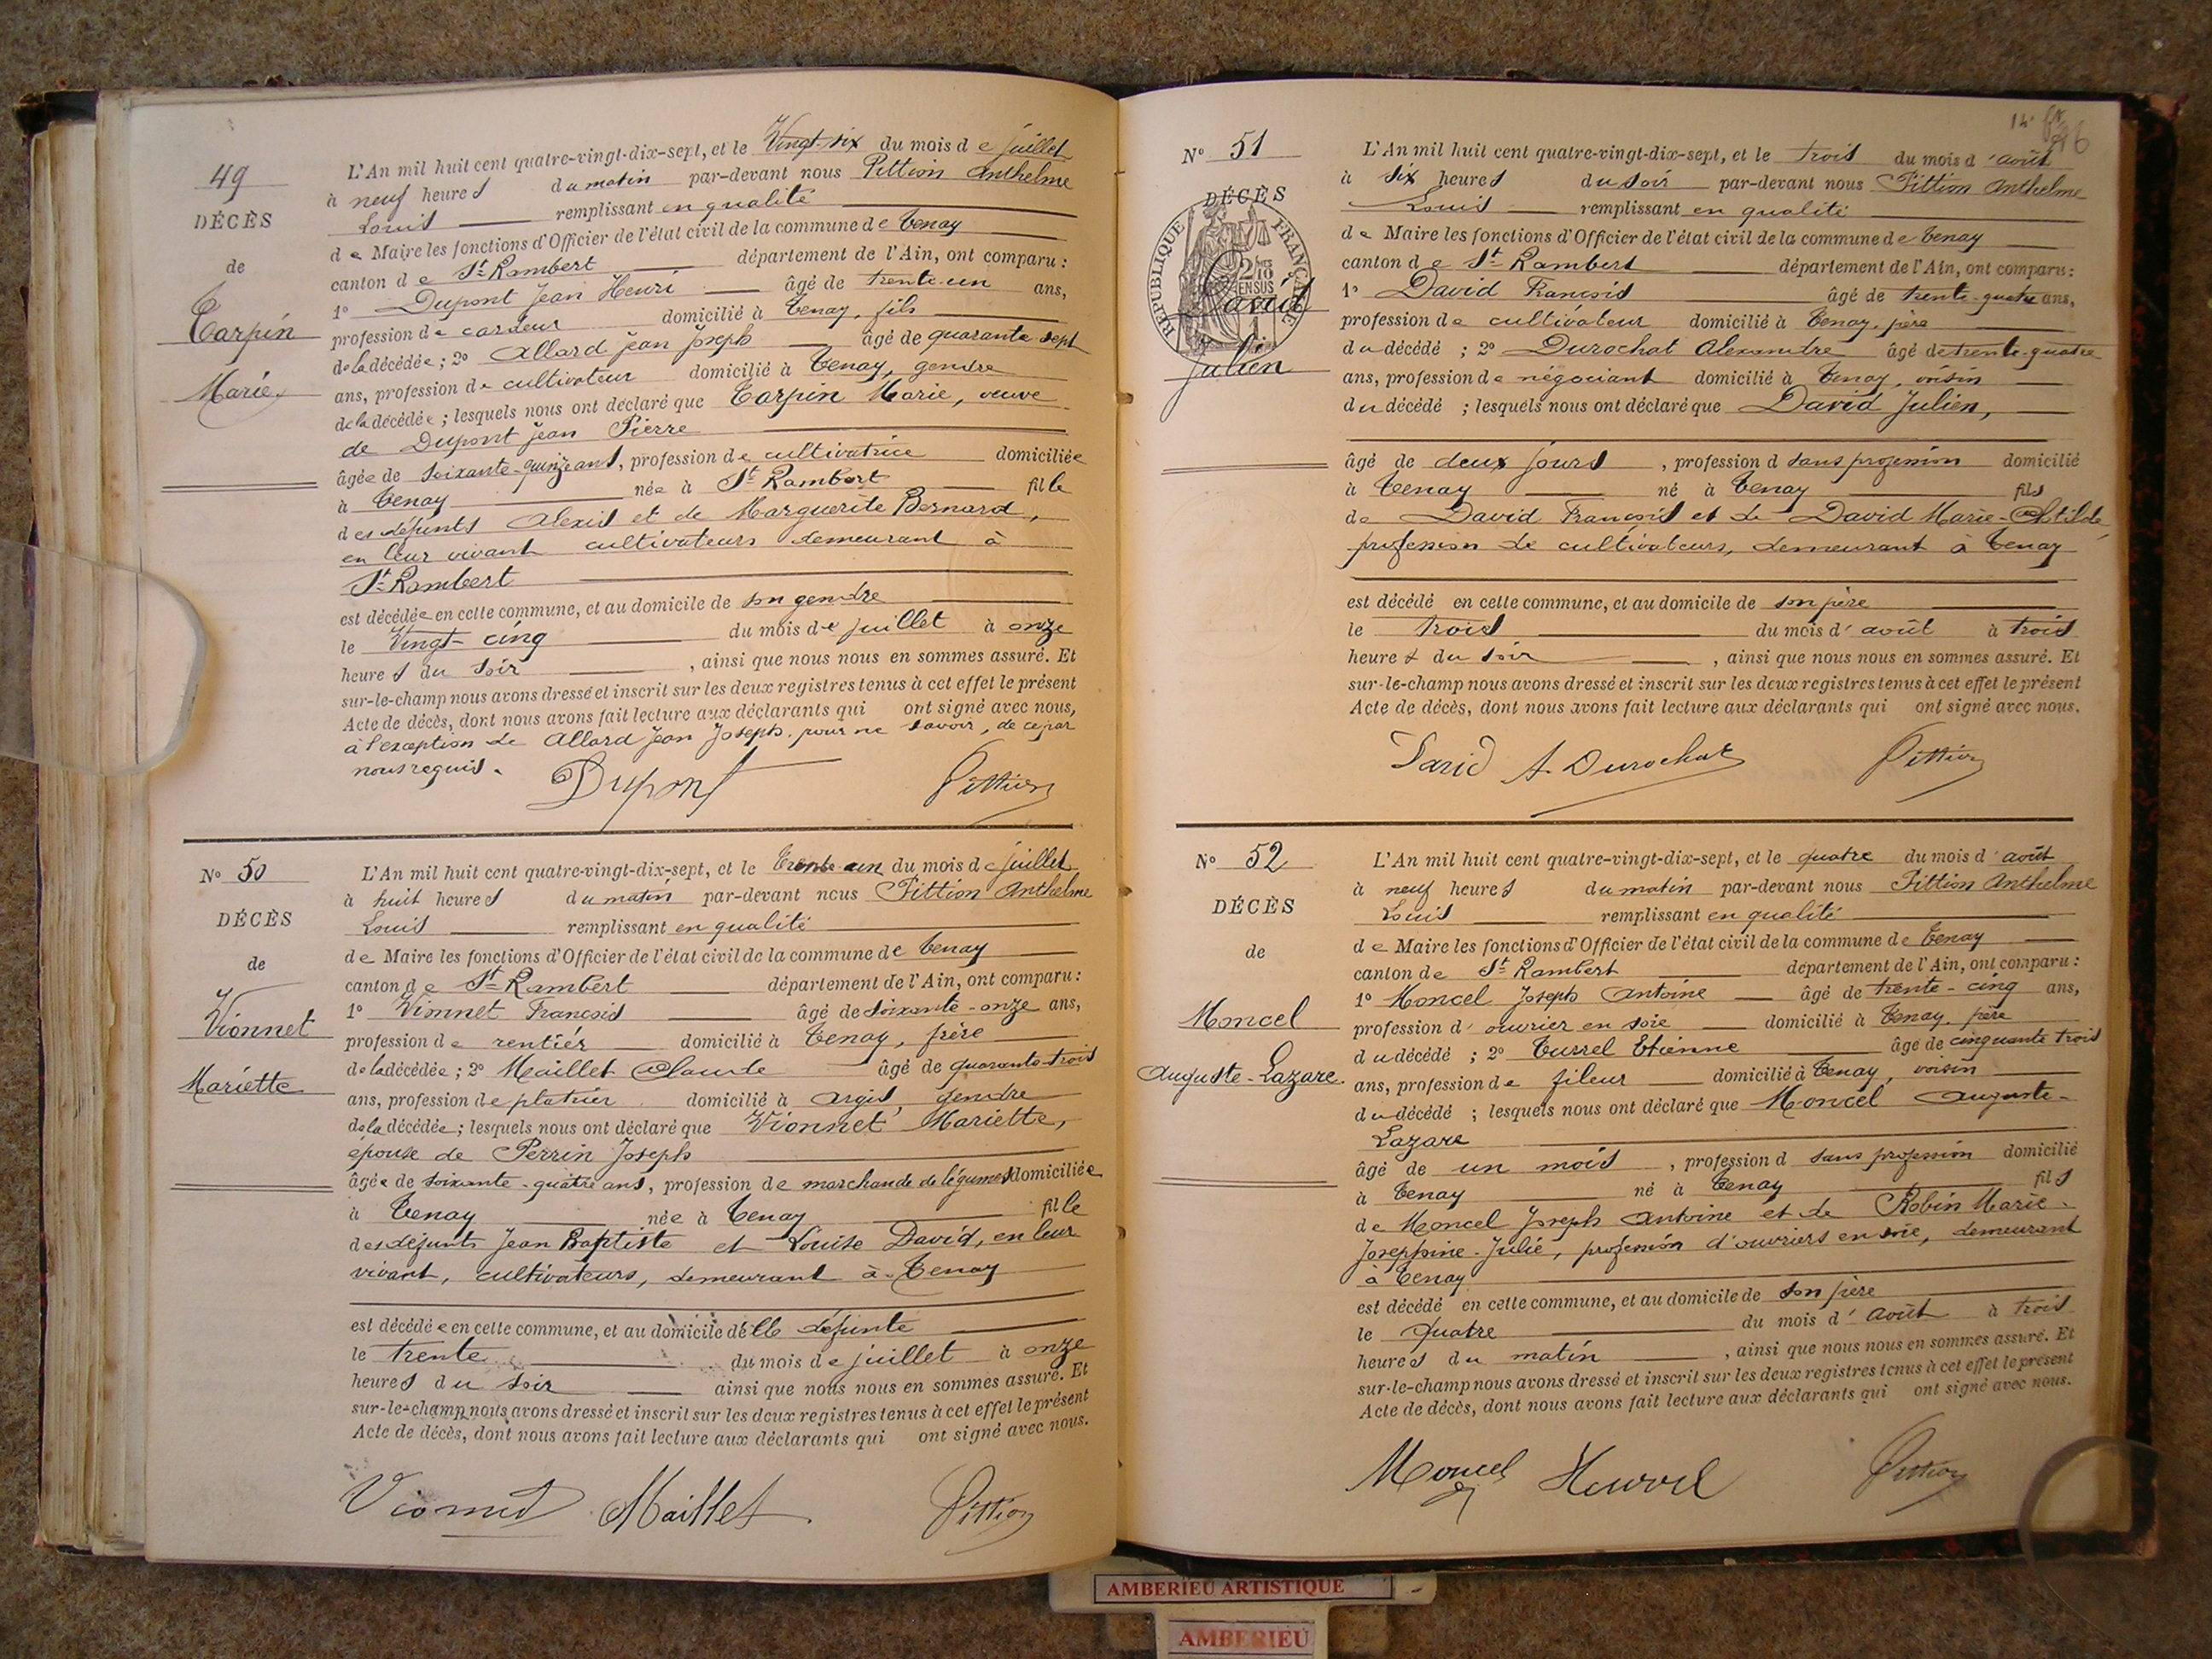 49
DÉCÈS
de
Carpin
Marie
L'An mil huit cent quatre-vingt-dix-sept, et le Vingt-six du mois de juillet
à neuf heures du matin par-devant nous Pittion Anthelme
Louis remplissant en qualité
de Maire les fonctions d'Officier de l'état civil de la commune de Tenay
canton de St Rambert département de l'Ain, ont comparu :
1° Dupont Jean Henri âgé de trente-un ans,
profession de cardeur domicilié à Tenay, fils
de la décédée ; 2° Allard Jean Joseph âgé de quarante sept
ans, profession de cultivateur domicilié à Tenay, gendre
de la décédée ; lesquels nous ont déclaré que Carpin Marie, veuve
de Dupont Jean Pierre
âgée de soixante-quinze ans, profession de cultivatrice domiciliée
à Tenay née à St Rambert fille
des défunts Alexis et de Marguerite Bernard,
en leur vivant cultivateurs demeurant à
St Rambert
est décédée en cette commune, et au domicile de son gendre
le Vingt-cinq du mois de juillet à onze
heures du soir , ainsi que nous nous en sommes assuré. Et
sur-le-champ nous avons dressé et inscrit sur les deux registres tenus à cet effet le présent
Acte de décès, dont nous avons fait lecture aux déclarants qui ont signé avec nous,
à l'exception de Allard Jean Joseph pour ne savoir, de ce par
nous requis.
Dupont Pittion
N° 50
DÉCÈS
de
Vionnet
Mariette
L'An mil huit cent quatre-vingt-dix-sept, et le trente-un du mois de juillet
à huit heures du matin par-devant nous Pittion Anthelme
Louis remplissant en qualité
de Maire les fonctions d'Officier de l'état civil de la commune de Tenay
canton de St Rambert département de l'Ain, ont comparu :
1° Vionnet François âgé de soixante-onze ans,
profession de rentier domicilié à Tenay, frère
de la décédée ; 2° Maillet Claude âgé de quarante-trois
ans, profession de platrier domicilié à Argis, gendre
de la décédée ; lesquels nous ont déclaré que Vionnet Mariette,
épouse de Perrin Joseph
âgée de soixante-quatre ans, profession de marchande de légumes domiciliée
à Tenay née à Tenay fille
des défunts Jean Baptiste et Louise David, en leur
vivant, cultivateurs, demeurant à Tenay
est décédée en cette commune, et au domicile de lle défunte
le trente du mois de juillet à onze
heures du soir ainsi que nous nous en sommes assuré. Et
sur-le-champ nous avons dressé et inscrit sur les deux registres tenus à cet effet le présent
Acte de décès, dont nous avons fait lecture aux déclarants qui ont signé avec nous.
Vionnet Maillet Pittion
14
N° 51
DÉCÈS
RÉPUBLIQUE FRANÇAISE
David
Julien
L'An mil huit cent quatre-vingt-dix-sept, et le trois du mois d'août
à six heures du soir par-devant nous Pittion Anthelme
Louis remplissant en qualité
de Maire les fonctions d'Officier de l'état civil de la commune de Tenay
canton de St Rambert département de l'Ain, ont comparu :
1° David François âgé de trente-quatre ans,
profession de cultivateur domicilié à Tenay, père
du décédé ; 2° Durochat Alexandre âgé de trente-quatre
ans, profession de négociant domicilié à Tenay, voisin
du décédé ; lesquels nous ont déclaré que David Julien,
âgé de deux jours , profession d sans profession domicilié
à Tenay né à Tenay fils
de David François et de David Marie-Clotilde
profession de cultivateurs, demeurant à Tenay
est décédé en cette commune, et au domicile de son père
le trois du mois d'août à trois
heures du soir , ainsi que nous nous en sommes assuré. Et
sur-le-champ nous avons dressé et inscrit sur les deux registres tenus à cet effet le présent
Acte de décès, dont nous avons fait lecture aux déclarants qui ont signé avec nous.
David A. Durochat Pittion
N° 52
DÉCÈS
de
Moncel
Auguste-Lazare.
L'An mil huit cent quatre-vingt-dix-sept, et le quatre du mois d'août
à neuf heures du matin par-devant nous Pittion Anthelme
Louis remplissant en qualité
de Maire les fonctions d'Officier de l'état civil de la commune de Tenay
canton de St Rambert département de l'Ain, ont comparu :
1° Moncel Joseph Antoine âgé de trente-cinq ans,
profession d'ouvrier en soie domicilié à Tenay, père
du décédé ; 2° Turrel Etienne âgé de cinquante trois
ans, profession de fileur domicilié à Tenay, voisin
du décédé ; lesquels nous ont déclaré que Moncel Auguste-
Lazare
âgé de un mois , profession d sans profession domicilié
à Tenay né à Tenay fils
de Moncel Joseph Antoine et de Robin Marie-
Josephine-Julie, profession d'ouvriers en soie, demeurant
à Tenay
est décédé en cette commune, et au domicile de son père
le quatre du mois d'août à trois
heures du matin , ainsi que nous nous en sommes assuré. Et
sur-le-champ nous avons dressé et inscrit sur les deux registres tenus à cet effet le présent
Acte de décès, dont nous avons fait lecture aux déclarants qui ont signé avec nous.
Moncel Pittion
AMBERIEU ARTISTIQUE
AMBERIEU